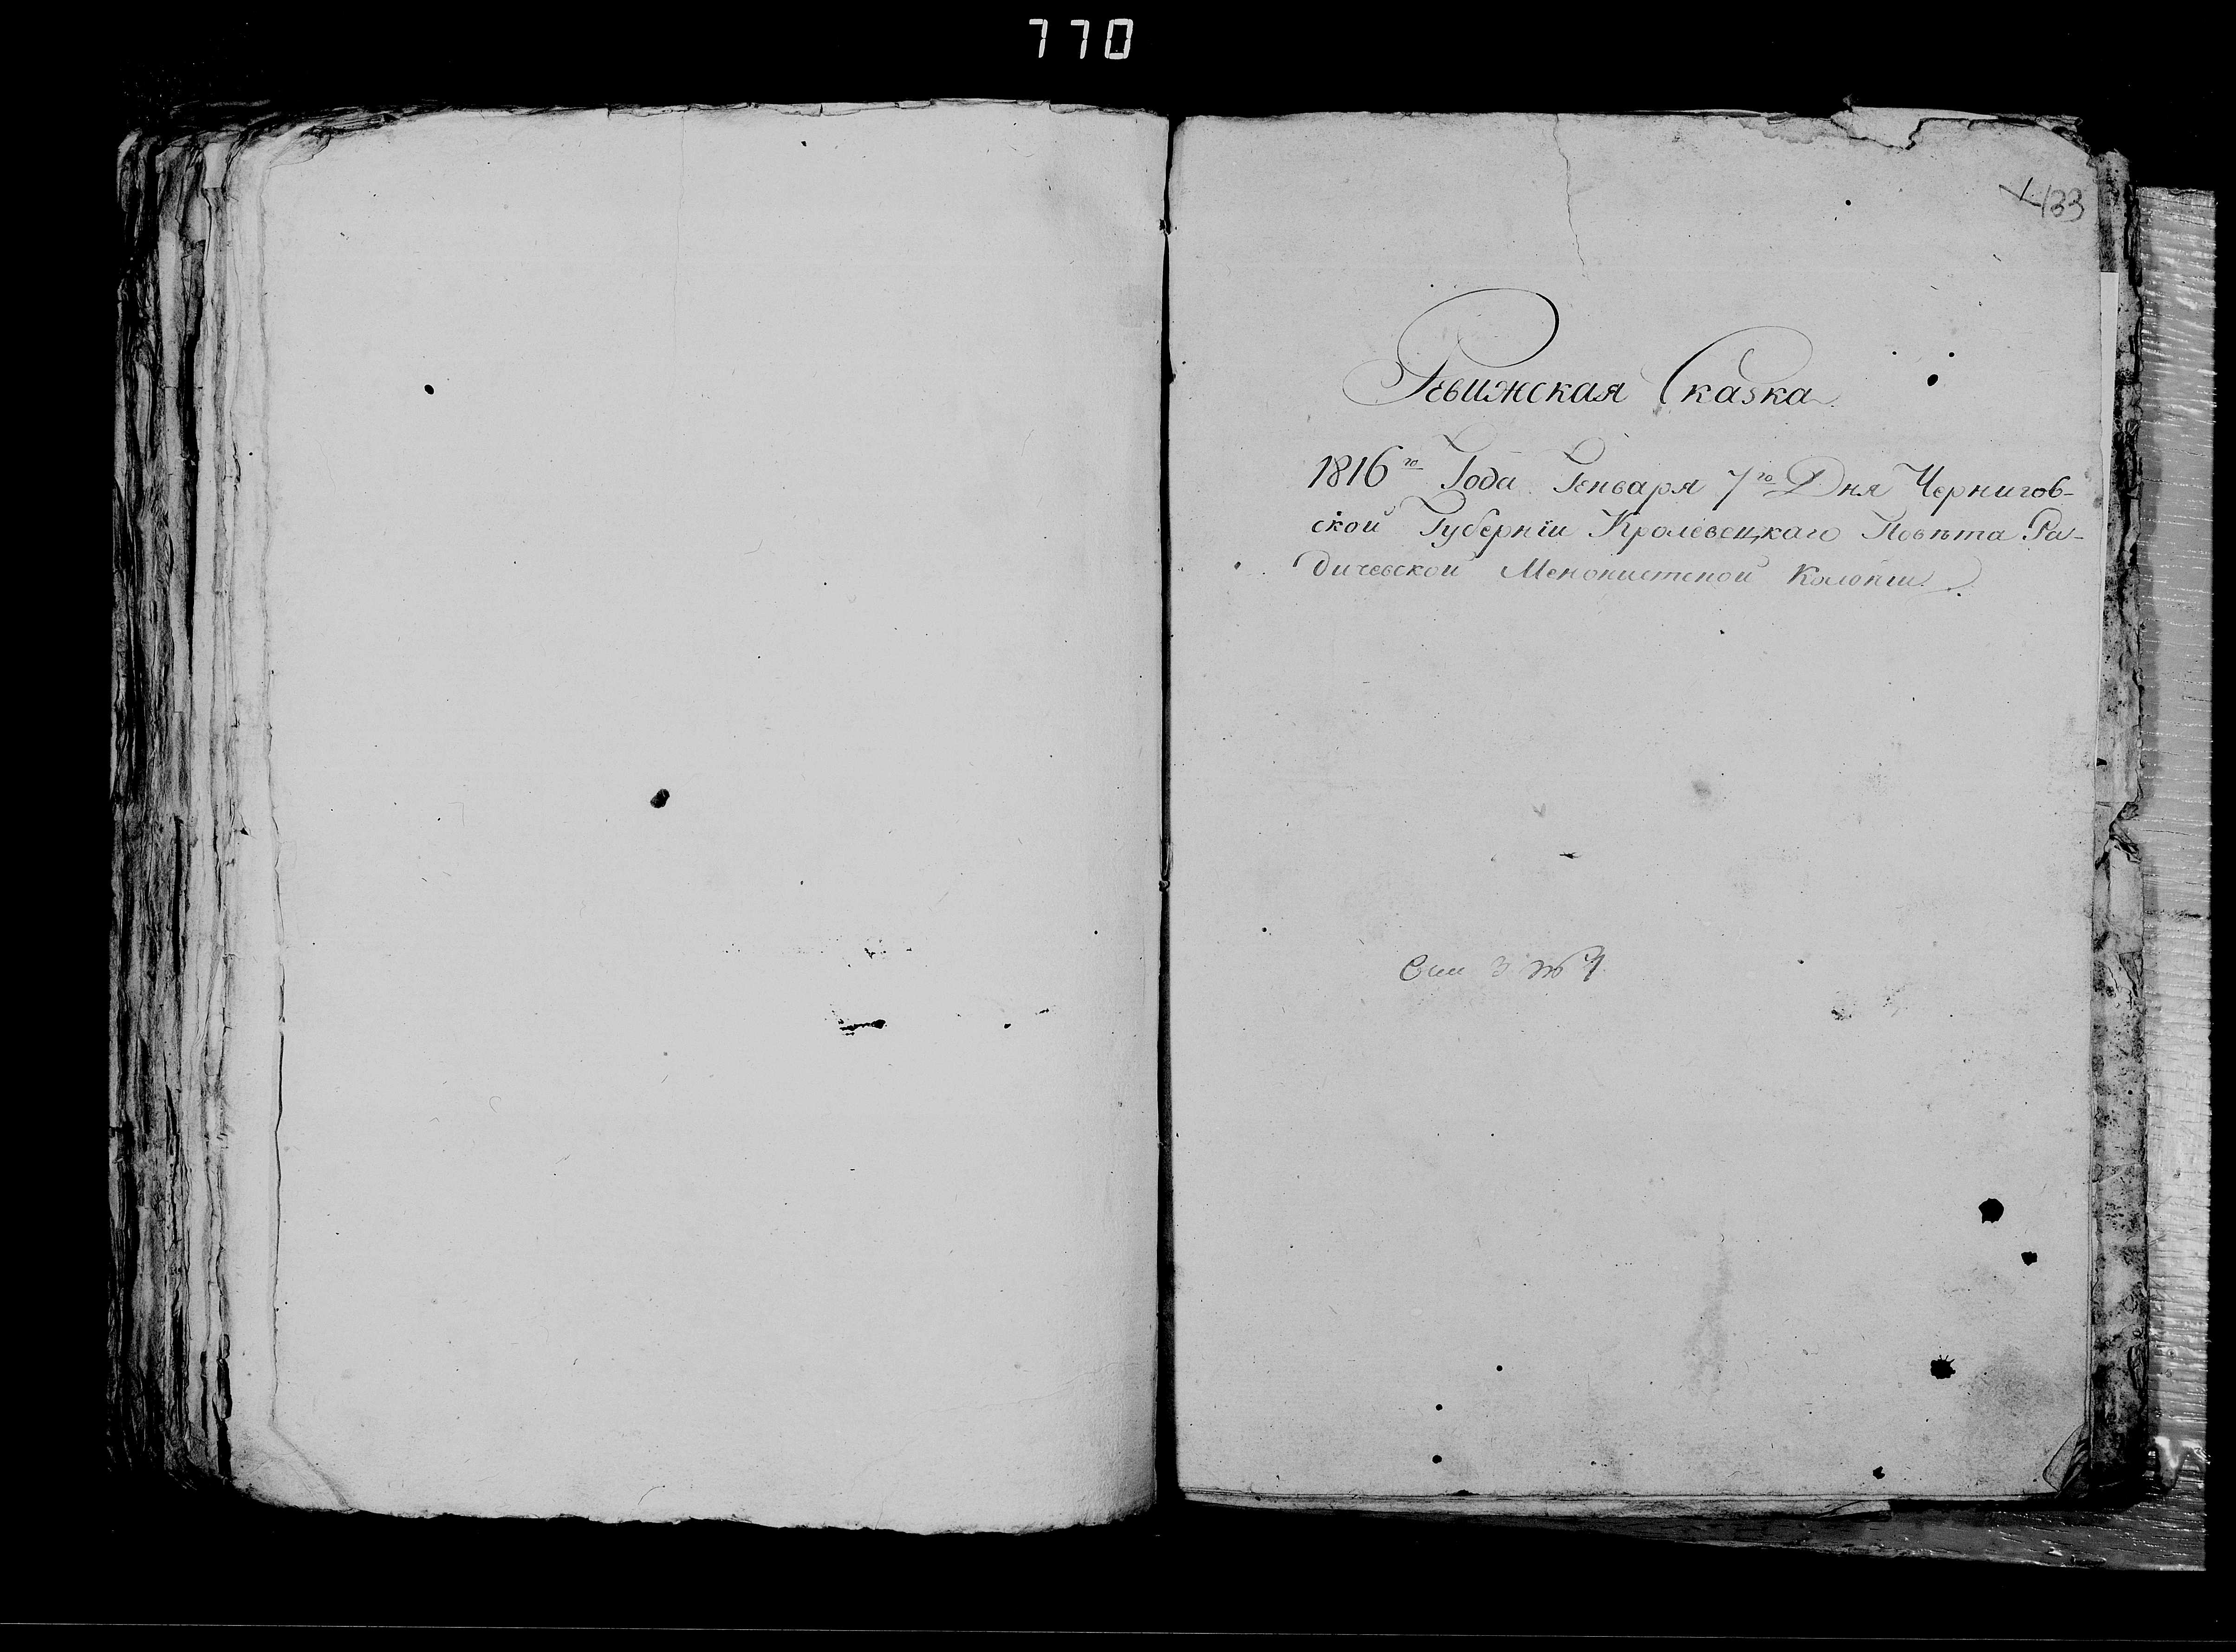 770
433
Ревижская Сказка
1816го Года Генваря 7го Дня Чернигов-
ской Губернїи Кролевецкаго Повѣта Ра-
дичевской Менонистской Колонїи.